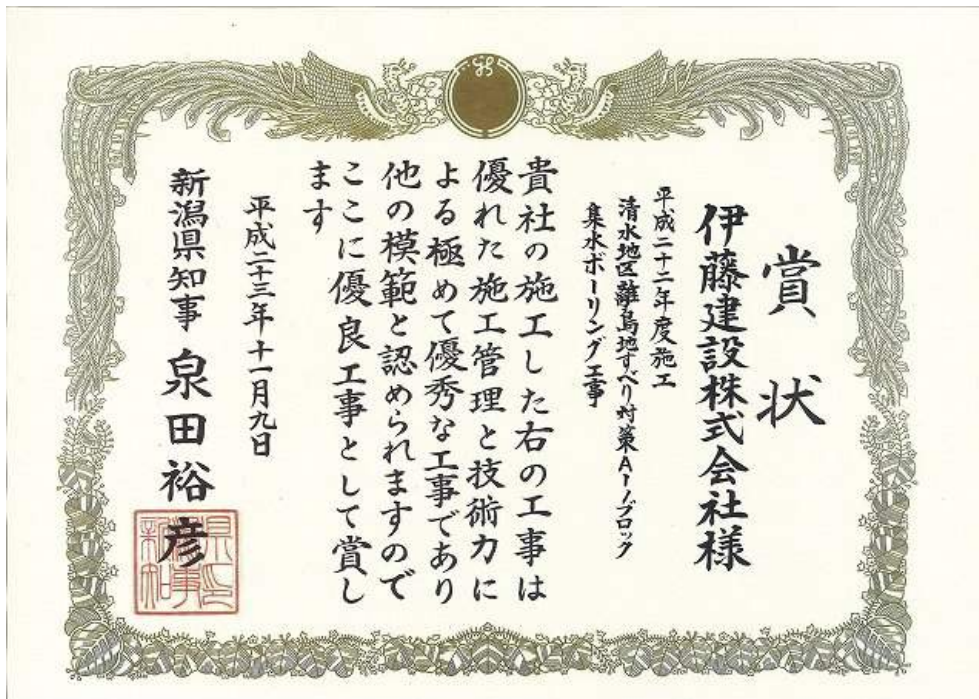 賞状
伊藤建設株式会社様
平成二十二年度施工
清水地区離島地すべり対策A1ブロック
集水ボーリング工事
貴社の施工した右の工事は
優れた施工管理と技術力に
よる極めて優秀な工事であり
他の模範と認められますので
ここに優良工事として賞し
ます
平成二十三年十一月九日
新潟県知事 泉田裕彦